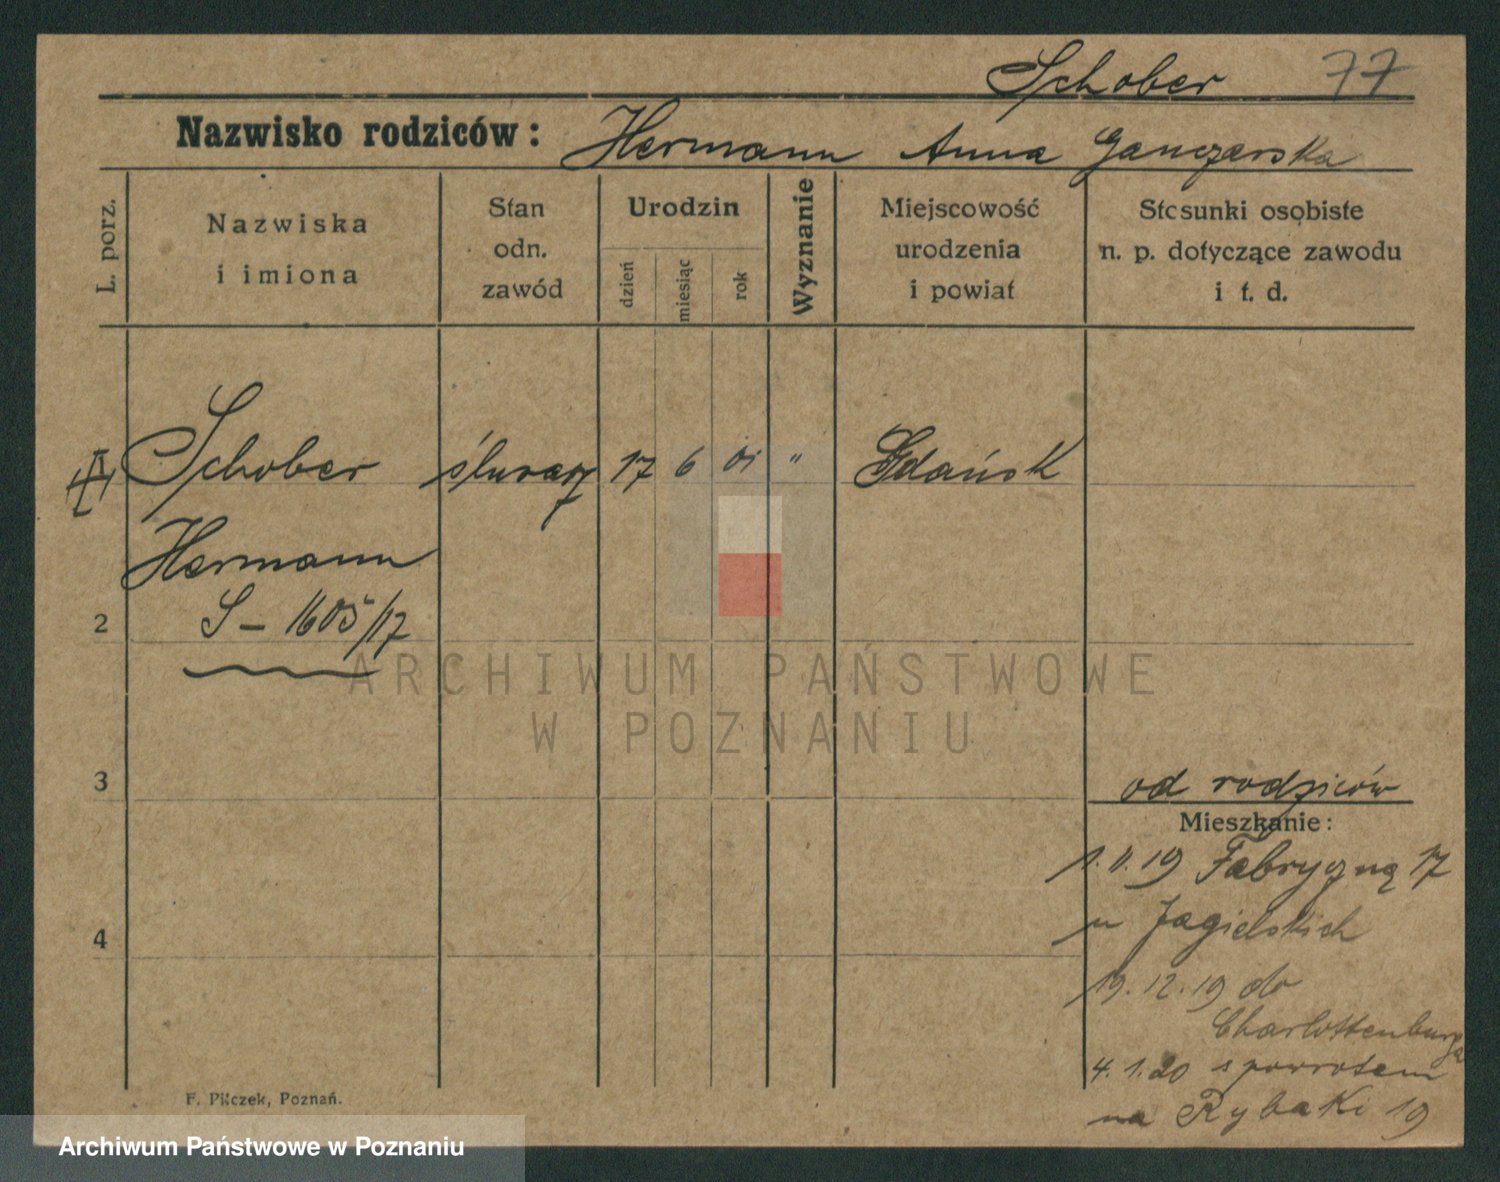 Schober 77
Nazwisko rodziców: Hermann Anna Ganczarska
L. porz.
Nazwiska
i imiona
Stan
odn.
zawód
Urodzin
dzień
miesiąc
rok
Wyznanie
Miejscowość
urodzenia
i powiat
Stosunki osobiste
n. p. dotyczące zawodu
i t. d.
Schober ślusarz 17 6 01 " Gdańsk
Hermann
2 S – 1605/17
3
od rodziców
Mieszkanie:
1.11.19 Fabryczną 17
4
u Jagielskich
19.12.19 do
Charlottenburga
4.1.20 z powrotem
na Rybaki 19
F. Pilczek, Poznań.
ARCHIWUM PAŃSTWOWE
W POZNANIU
Archiwum Państwowe w Poznaniu